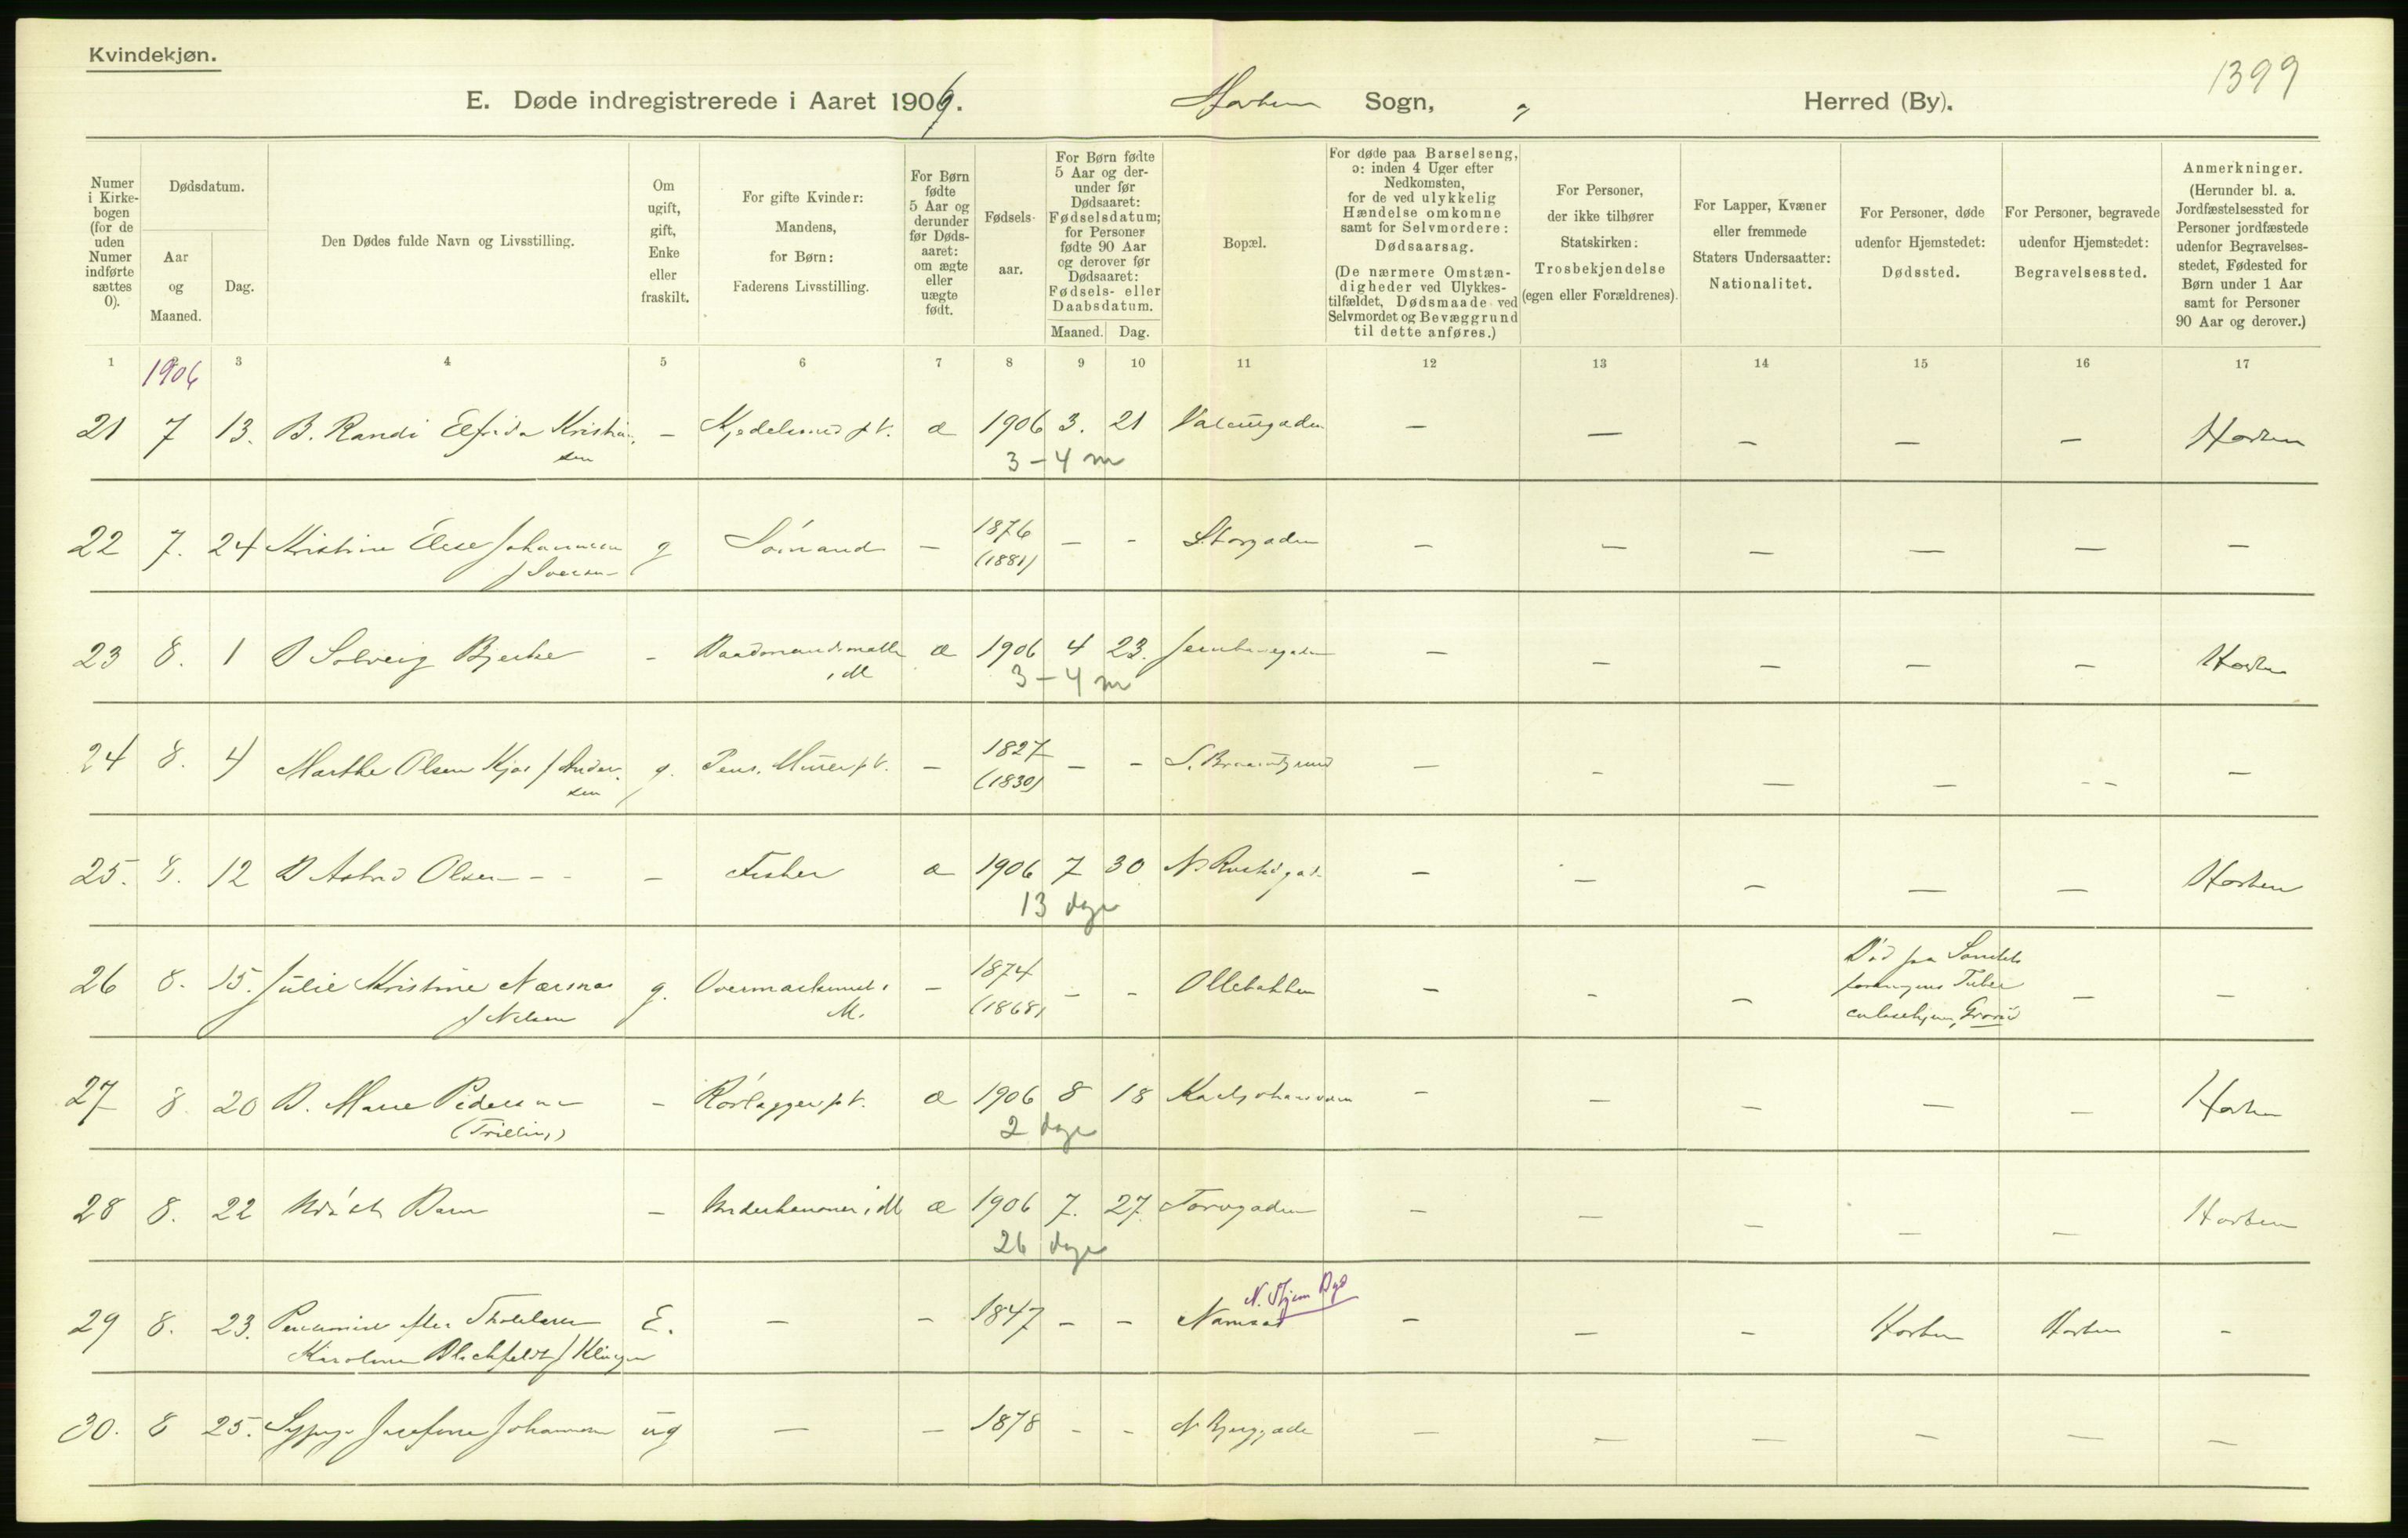 Kvindekjøn.
1399
E. Døde indregistrerede i Aaret 1906. Horten Sogn, Herred (By).
Numer i Kirkebogen (for de uden Numer indførte sættes 0).
Dødsdatum.
Aar og Maaned.
Dag.
Den Dødes fulde Navn og Livsstilling.
Om ugift, gift, Enke eller fraskilt.
For gifte Kvinder: Mandens, for Børn: Faderens Livsstilling.
For Børn fødte 5 Aar og derunder før Dødsaaret: om ægte eller uægte født.
Fødselsaar.
For Børn fødte 5 Aar og derunder før Dødsaaret: Fødselsdatum; for Personer fødte 90 Aar og derover før Dødsaaret: Fødsels- eller Daabsdatum.
Maaned. Dag.
Bopæl.
For døde paa Barselseng, ɔ: inden 4 Uger efter Nedkomsten, for de ved ulykkelig Hændelse omkomne samt for Selvmordere: Dødsaarsag.
(De nærmere Omstændigheder ved Ulykkestilfældet, Dødsmaade ved Selvmordet og Bevæggrund til dette anføres.)
For Personer, der ikke tilhører Statskirken: Trosbekjendelse (egen eller Forældrenes).
For Lapper, Kvæner eller fremmede Staters Undersaatter: Nationalitet.
For Personer, døde udenfor Hjemstedet: Dødssted.
For Personer, begravede udenfor Hjemstedet: Begravelsessted.
Anmerkninger.
(Herunder bl. a. Jordfæstelsessted for Personer jordfæstede udenfor Begravelsesstedet, Fødested for Børn under 1 Aar samt for Personer 90 Aar og derover.)
1 1906 3 4 5 6 7 8 9 10 11 12 13 14 15 16 17
21 7 13. B. Randi Elfrida Kristian- – Kjedelsmed p V. æ 1906 3. 21 – – – – – Horten
sen 3–4 m
22 7. 24 Kristine Elise Johannesen g Sømand – 1876 – - Storgaden – – – – – –
(1881)
23 8. 1 Solveig Bjerke - æ 1906 4 23. Jernbanegaden – – – – – Horten
i M 3–4 m
24 8. 4 Marthe Olsen Kjær f Ander- g. Pens. Murer p V. – 1827 – - – – – – - - –
sen (1830)
25. 8. 12 Astrid Olsen - - – Fisker æ 1906 7 30 – – – – – Horten
13 dage
26 8. 15. Julie Kristine Næsnæs g. – 1874 – - Ollebakken – - – Død paa Sanitets – –
f Nilsen M. (1868) foreningens Tuber
culosehjem, Grorud
27 8 20 B. Marie Pedersen – Rørlægger p V. æ 1906 8 18 Karljohansvern – – – – – Horten
(Trilling) 2 dage
28 8. 22 Udøbt Barn – Underkanoner i M æ 1906 7. 27. Torvgaden – – – – – Horten
26 dage
29 8. 23. efter E. – – 1847 – – – – – Horten Horten –
Karoline Blichfeldt f Klinge
30. 8 25. Sypige Josefine Johannesen ug – – 1878 - - N Bjerggade – – – – – –